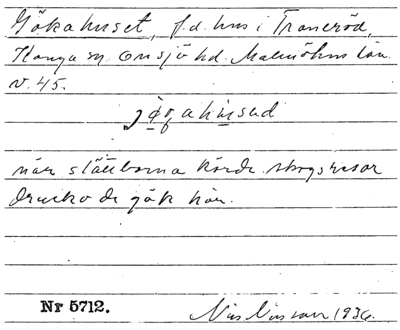 Gökahuset, f.d. hus i Traneröd,
Konga sn. Onsjö hd. Malmöhus län
v. 45.
jögahused
när slättborna körde skogsresor
drucko de gök här.
Nr 5712.
Nils Nilsson 1936.